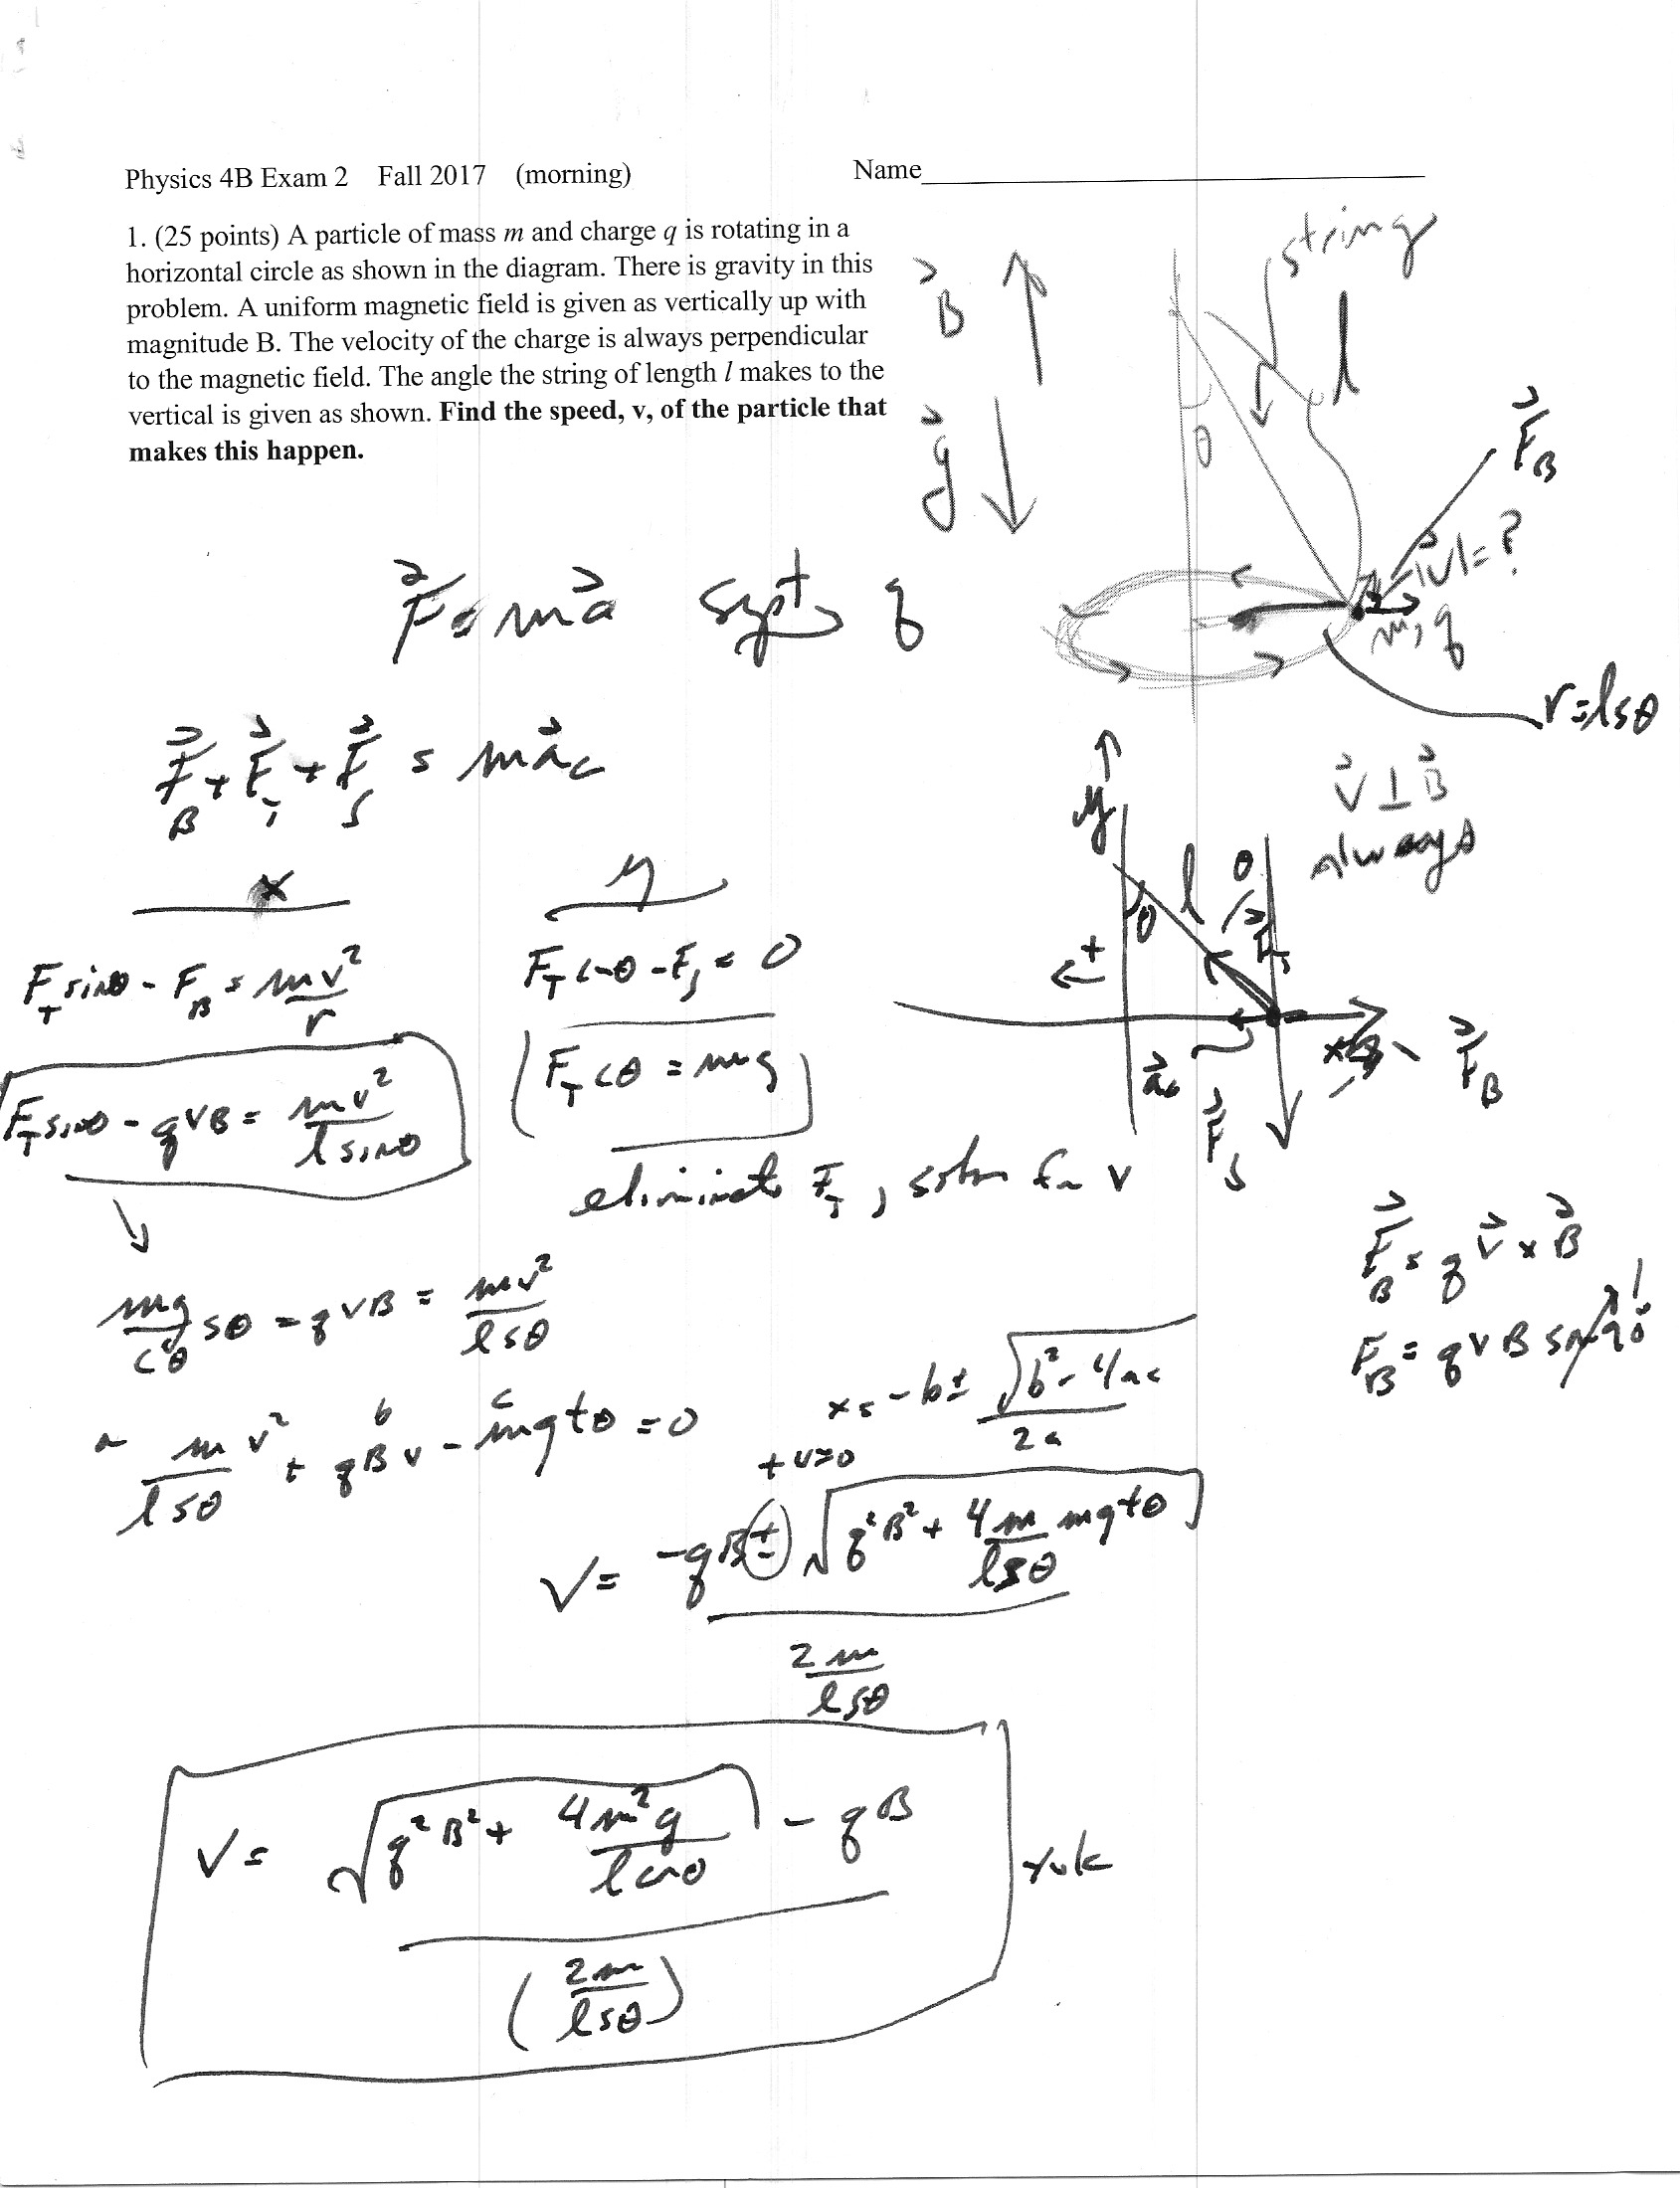 Physics 4B Exam 2 Fall 2017 (morning) Name
1. (25 points) A particle of mass m and charge q is rotating in a
horizontal circle as shown in the diagram. There is gravity in this
problem. A uniform magnetic field is given as vertically up with
magnitude B. The velocity of the charge is always perpendicular
to the magnetic field. The angle the string of length l makes to the
vertical is given as shown. Find the speed, v, of the particle that
makes this happen.
string
B⃗
l
g⃗
θ
F⃗_B
|v⃗| = ?
m, q
r = l sθ
F⃗ = m a⃗ q
v⃗ ⊥ B⃗
always
F⃗_B + F⃗_T + F⃗_g = m a⃗_c
x
y
F_T sinθ - F_B = mv²/r
F_T cosθ - F_g = 0
F_T sinθ - qvB = mv²/(l sinθ)
F_T cθ = mg
y
l
θ
θ
F⃗_T
+
a⃗_c
F⃗_B
F⃗_g
eliminate F_T, solve for v
F⃗_B = q v⃗ x B⃗
F_B = qvB sin 90° 1
mg/cθ sθ - qvB = mv²/(l sθ)
a b c
m/(l sθ) v² + qBv - mg tθ = 0
x = -b ± √(b² - 4ac) / 2a
+ v>0
v = (-qB ± √(q²B² + 4 m/(l sθ) mg tθ)) / (2m/(l sθ))
v = (√(q²B² + 4m²g/(l cosθ)) - qB) / (2m/(l sθ))
yuk